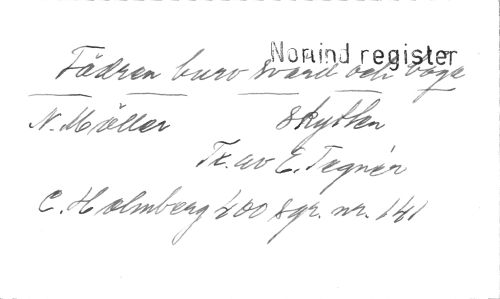 Nomind register
Fädren buro svärd och båge
N. Möller Skytten
Tx. av E. Tegnér
C. Holmberg 200 sgr. nr. 141